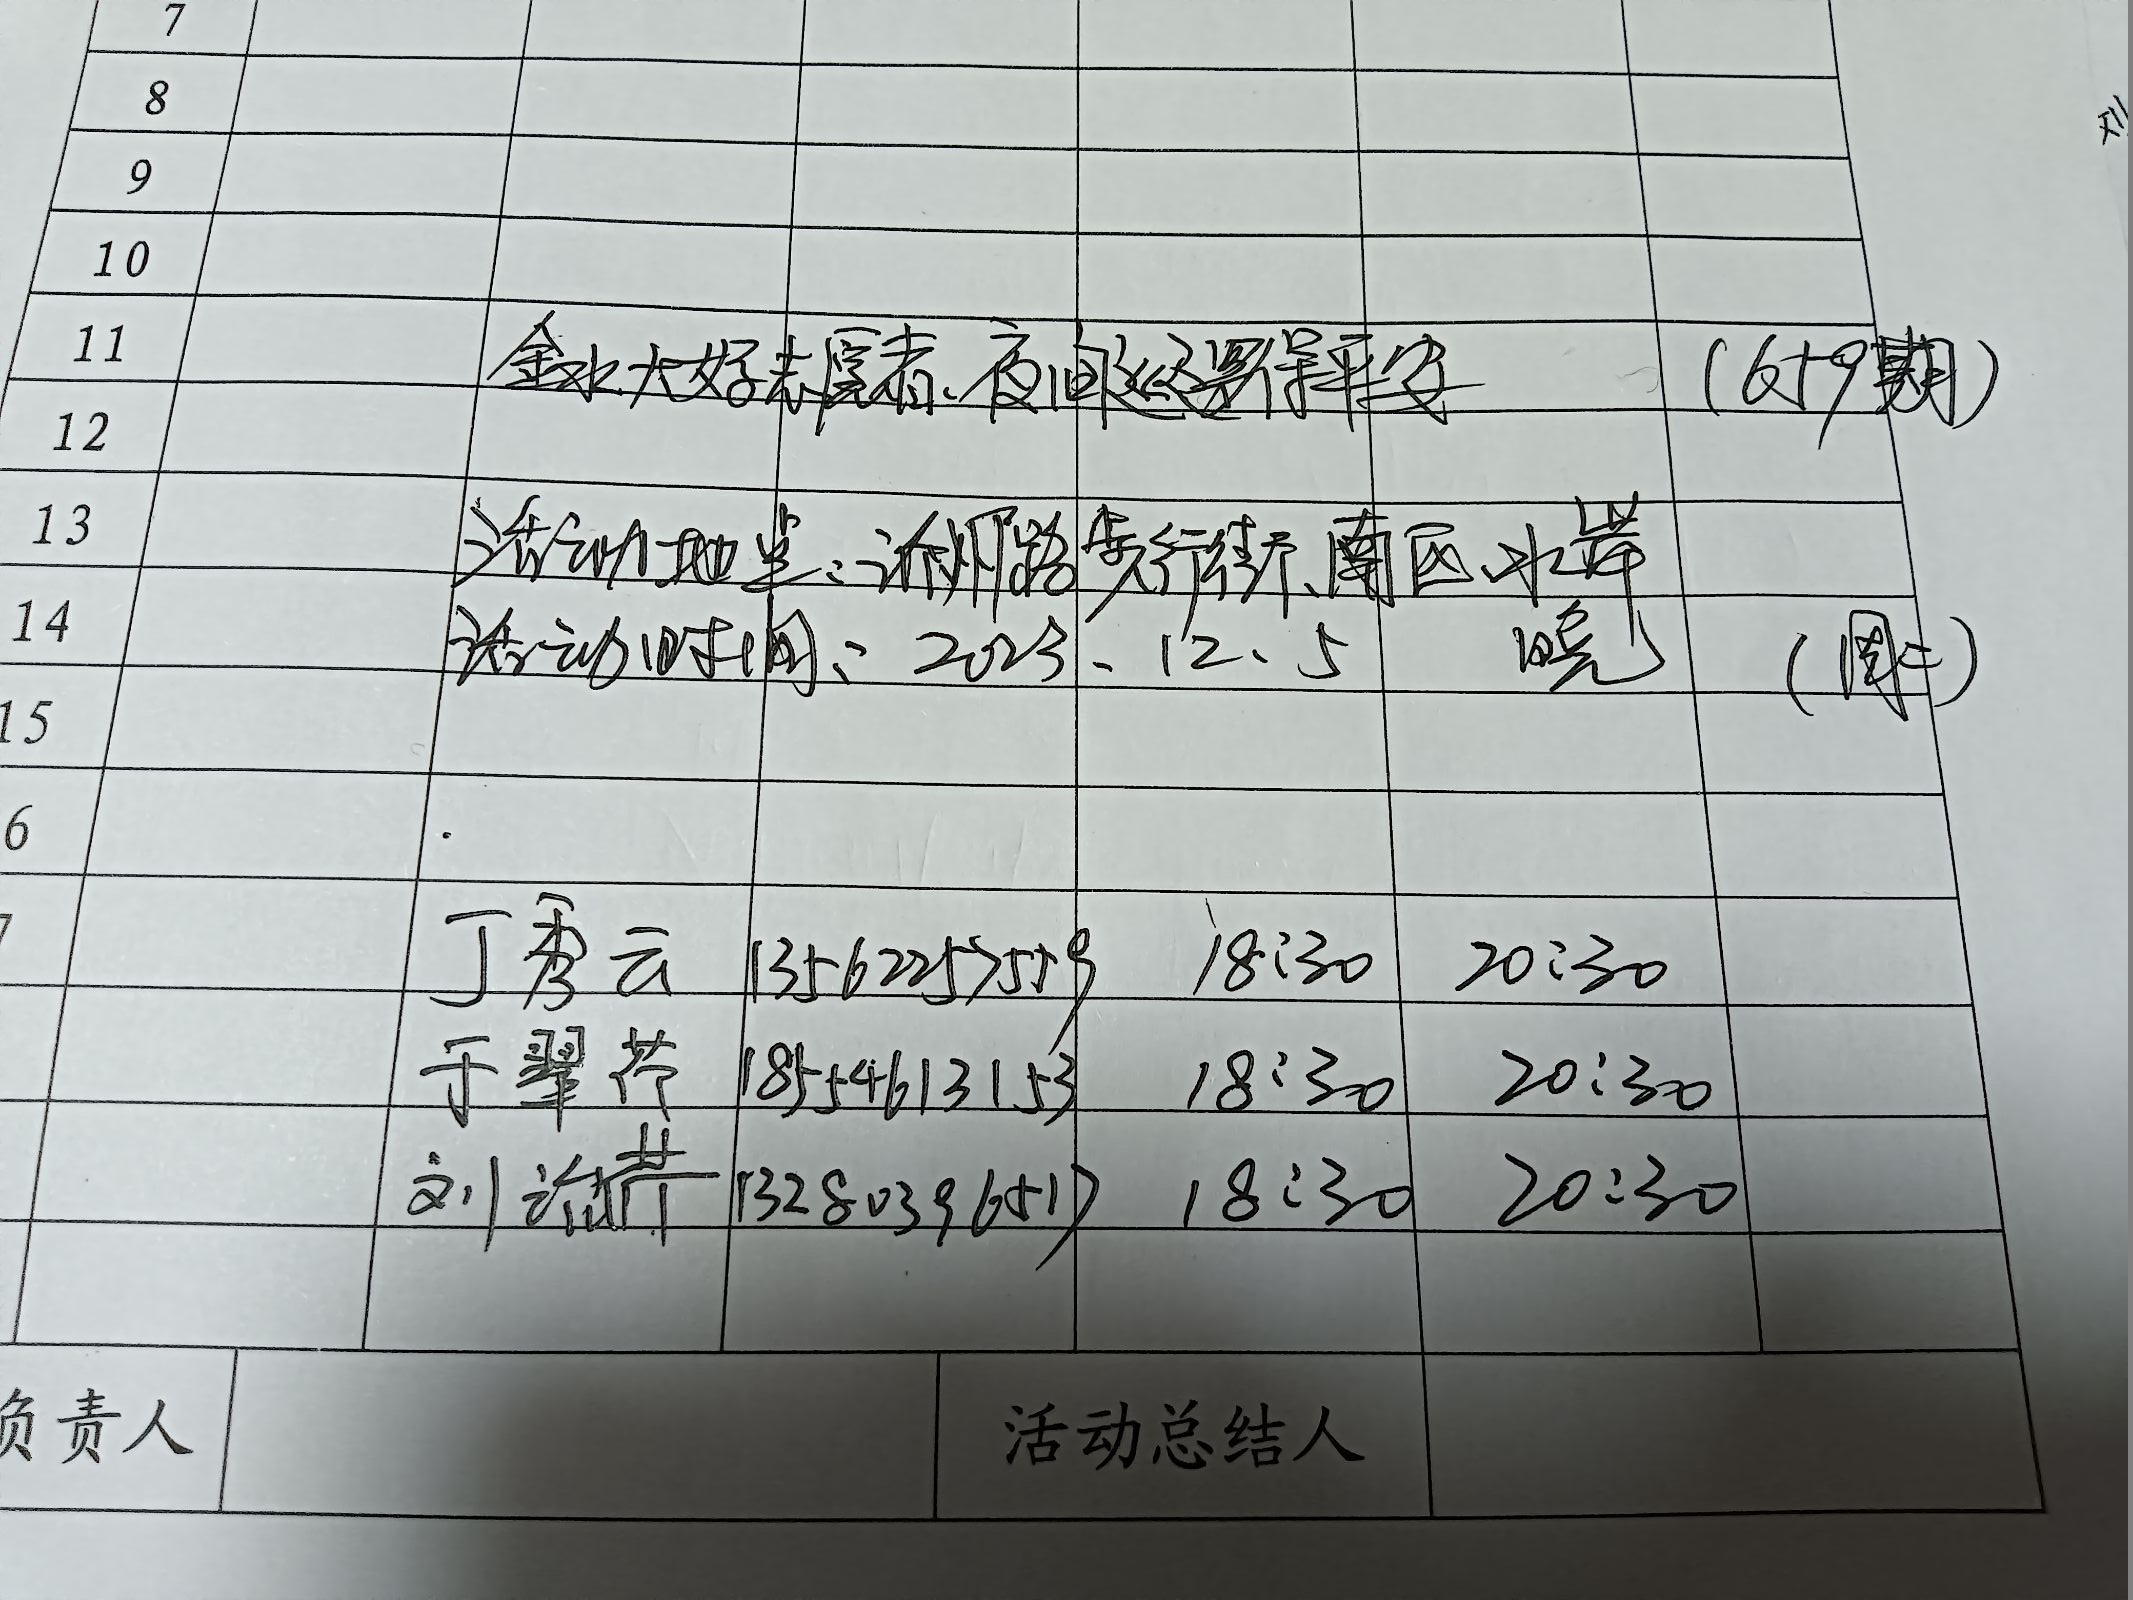 7
8
9
10
11
金水大好志愿者、夜间巡逻保平安 (659期)
12
13
活动地点:渝州路步行街、南区、水岸
14
活动时间: 2023、12、5 晚 (周二)
15
6
7
丁秀云 13562257559 18:30 20:30
于翠芹 18554613153 18:30 20:30
刘 13280396517 18:30 20:30
负责人
活动总结人